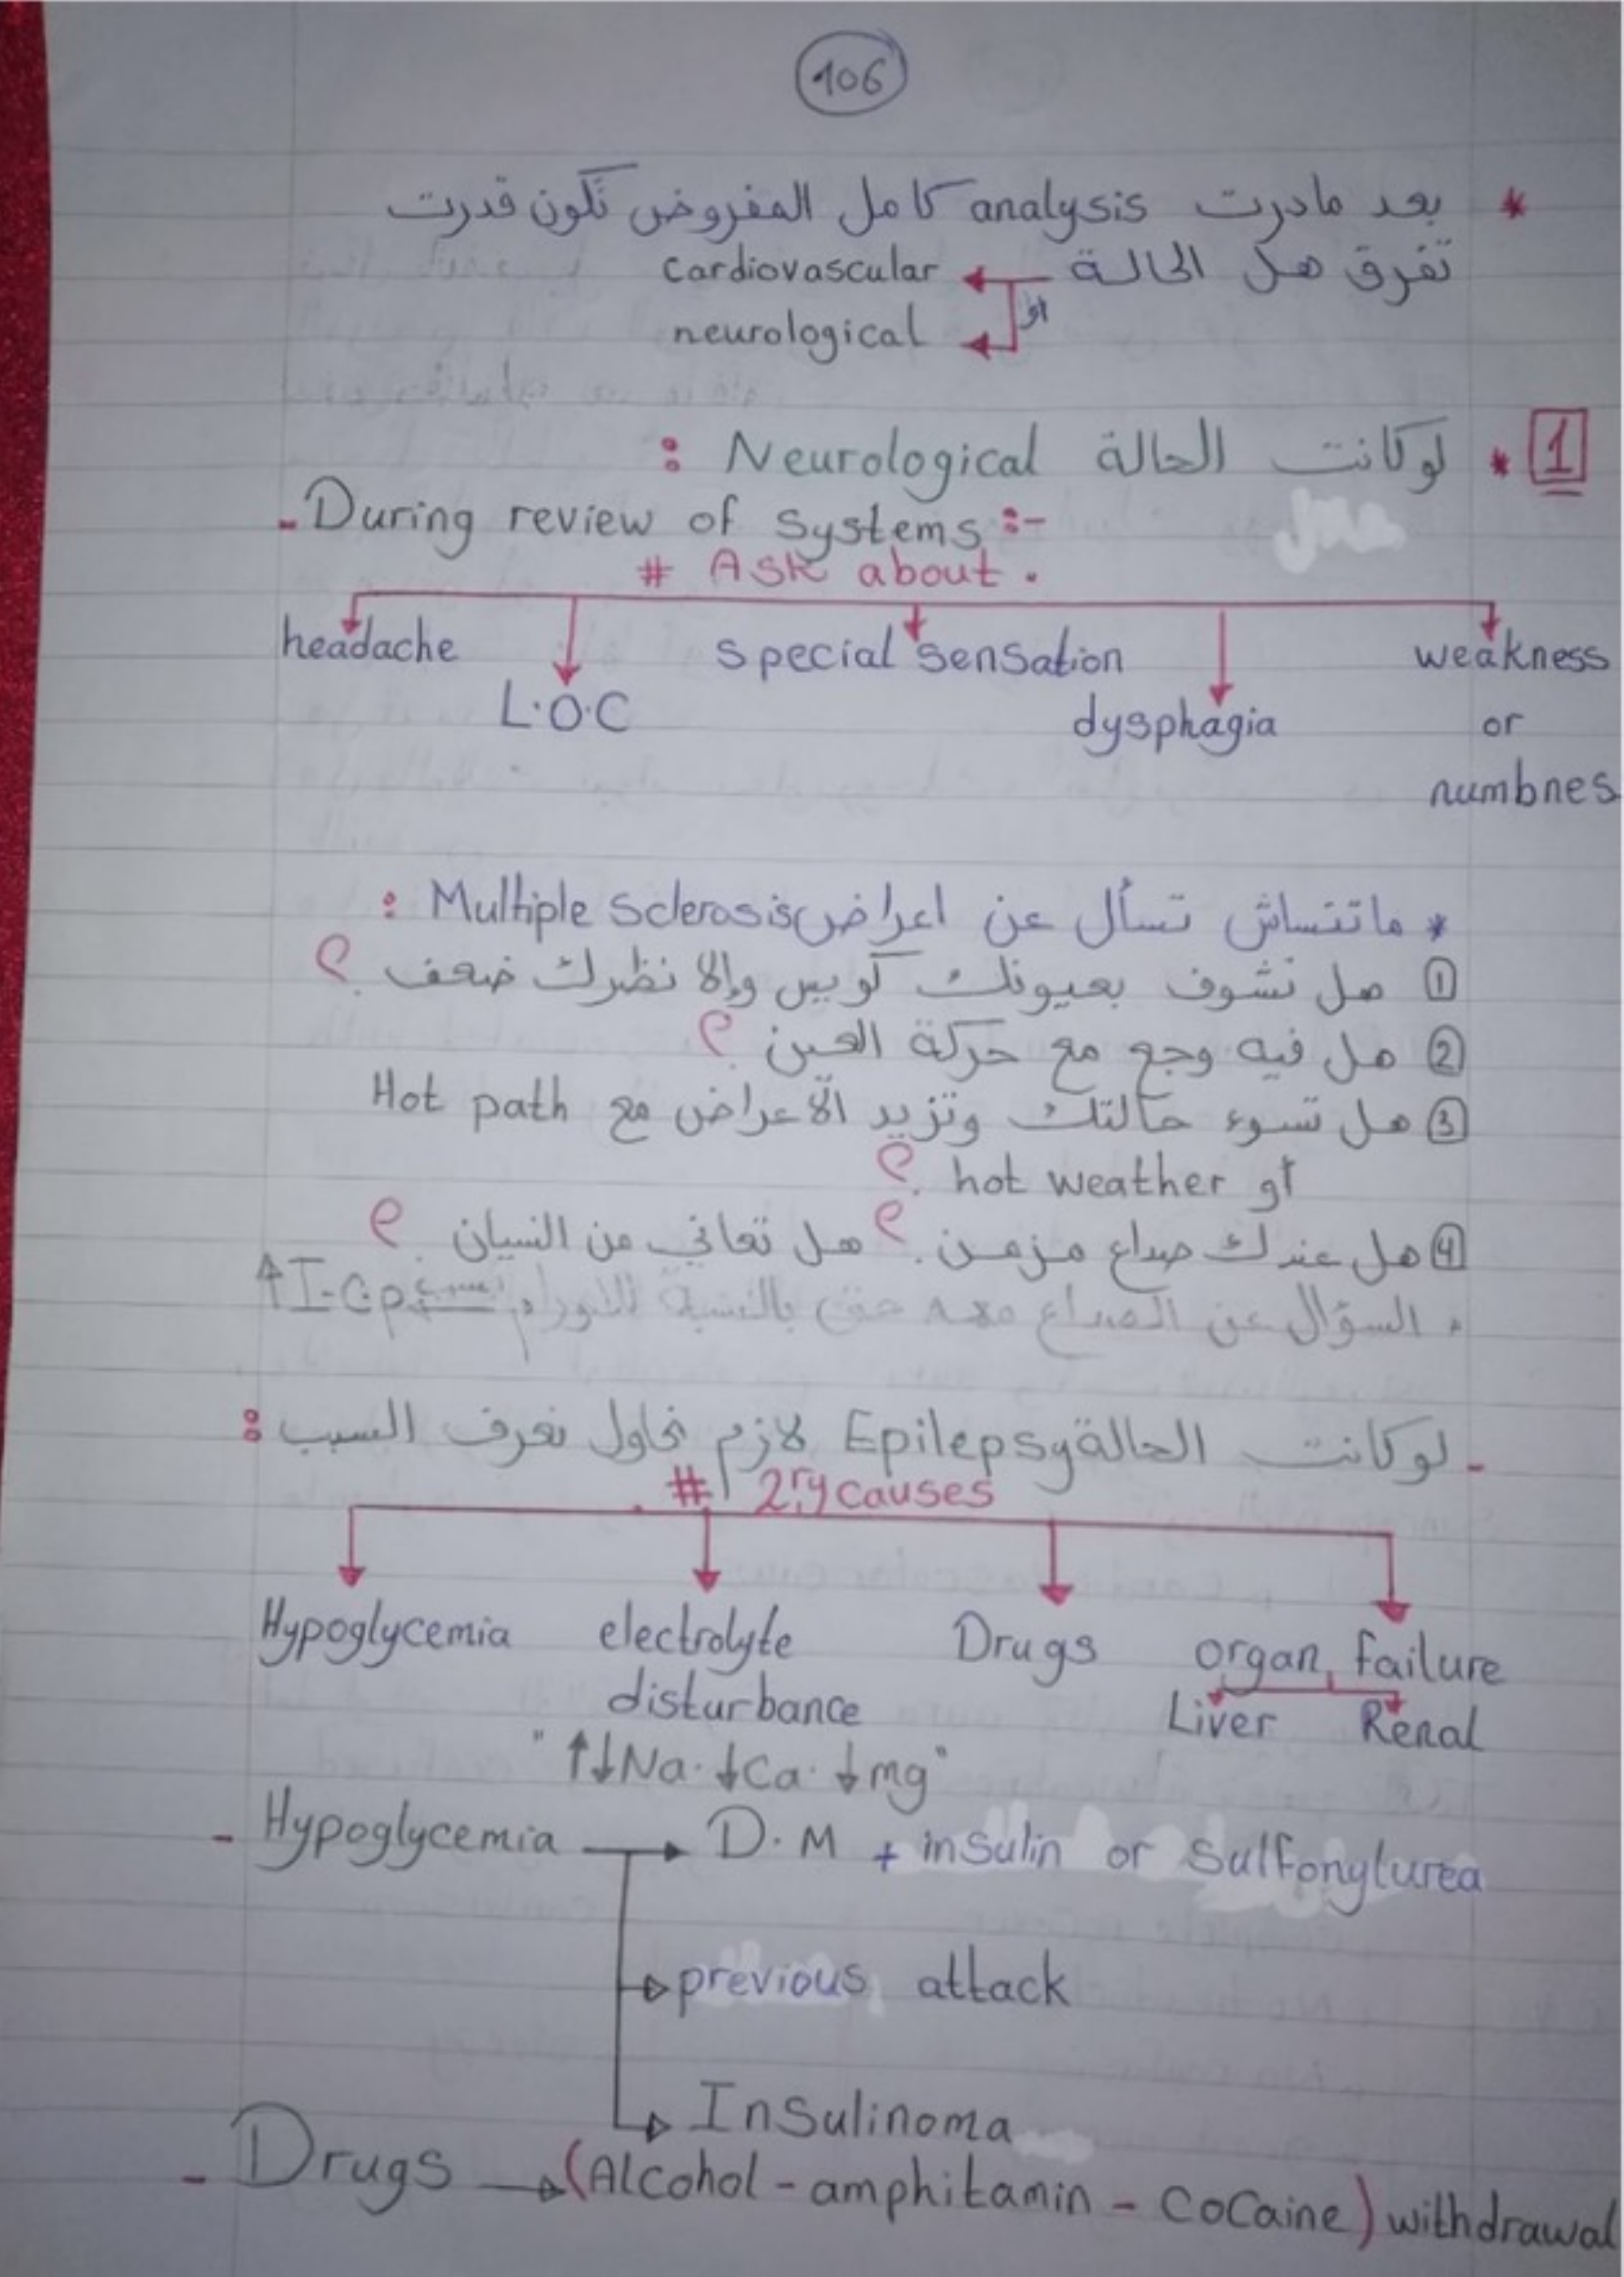 106
* بعد مادرت analysis كامل المفروض تكون قدرت
تفرق هل الحالة cardiovascular
او
neurological
1 * لو كانت الحالة Neurological :
- During review of systems :-
# Ask about .
headache
special sensation
weakness
L.O.C
dysphagia
or
numbnes
* ماتنساش تسأل عن اعراض Multiple sclerosis :
① هل تشوف بعيونك كويس وإلا نظرك ضعف ؟
② هل فيه وجع مع حركة العين ؟
③ هل تسوء حالتك وتزيد الأعراض مع Hot path
او hot weather ؟
④ هل عندك صداع مزمن ؟ هل تعاني من النسيان ؟
السؤال عن الصداع مهم حتى بالنسبة للاورام I.C.P↑
- لو كانت الحالة Epilepsy لازم نحاول نعرف السبب :
# 2ry causes
Hypoglycemia electrolyte Drugs organ failure
disturbance Liver Renal
"↑↓Na . ↓Ca . ↓mg"
- Hypoglycemia → D.M + insulin or sulfonylurea
→ previous attack
→ Insulinoma
- Drugs → (Alcohol - amphitamin - Cocaine) withdrawal